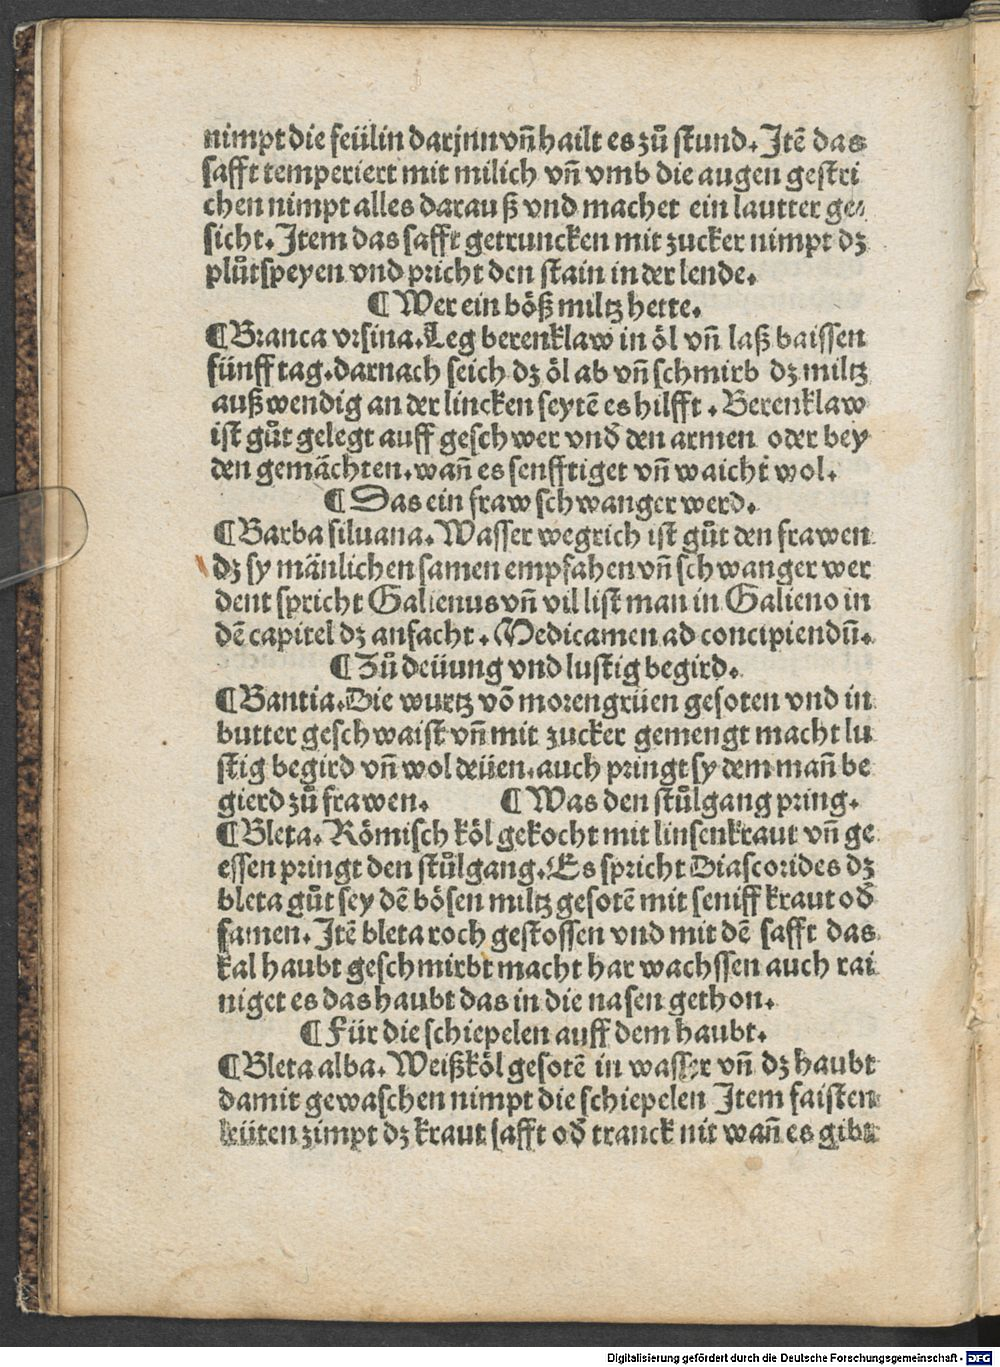 nimpt die feülin darjnn vñ hailt es zů stund. Itē das
safft temperiert mit milich vñ vmb die augen gestri
chen nimpt alles darauß vnd machet ein lautter ge⸗
sicht. Item das safft getruncken mit zucker nimpt dz
plůtspeyen vnd pricht den stain in der lende.
¶ Wer ein böß miltz hette.
¶ Branca vrsina. Leg berenklaw in öl vñ laß baissen
fünff tag. darnach seich dz öl ab vñ schmirb dz miltz
außwendig an der lincken seytē es hilfft. Berenklaw
ist gůt gelegt auff geschwer vnd den armen oder bey
den gemächten. wañ es senfftiget vñ waicht wol.
¶ Das ein fraw schwanger werd.
¶ Barba siluana. Wasser wegrich ist gůt den frawen
dz sy mänlichen samen empfahen vñ schwanger wer
dent spricht Galienus vñ vil list man in Galieno in
dē capitel dz anfacht. Medicamen ad concipiendū.
¶ Zů deüung vnd lustig begird.
¶ Bantia. Die wurtz vō morengrüen gesoten vnd in
butter geschwaist vñ mit zucker gemengt macht lu
stig begird vñ wol deüen. auch pringt sy dem mañ be
gierd zů frawen. ¶ Was den stůlgang pring.
¶ Bleta. Römisch köl gekocht mit linsenkraut vñ ge
essen pringt den stůlgang. Es spricht Diascorides dz
bleta gůt sey dē bösen miltz gesotē mit seniff kraut od̄
samen. Itē bleta roch gestossen vnd mit dē safft das
kal haubt geschmirbt macht har wachssen auch rai
niget es das haubt das in die nasen gethon.
¶ Für die schiepelen auff dem haubt.
¶ Bleta alba. Weißköl gesotē in wasser vñ dz haubt
damit gewaschen nimpt die schiepelen Item faisten
leüten zimpt dz kraut safft od̄ tranck nit wañ es gibt
Digitalisierung gefördert durch die Deutsche Forschungsgemeinschaft - DFG